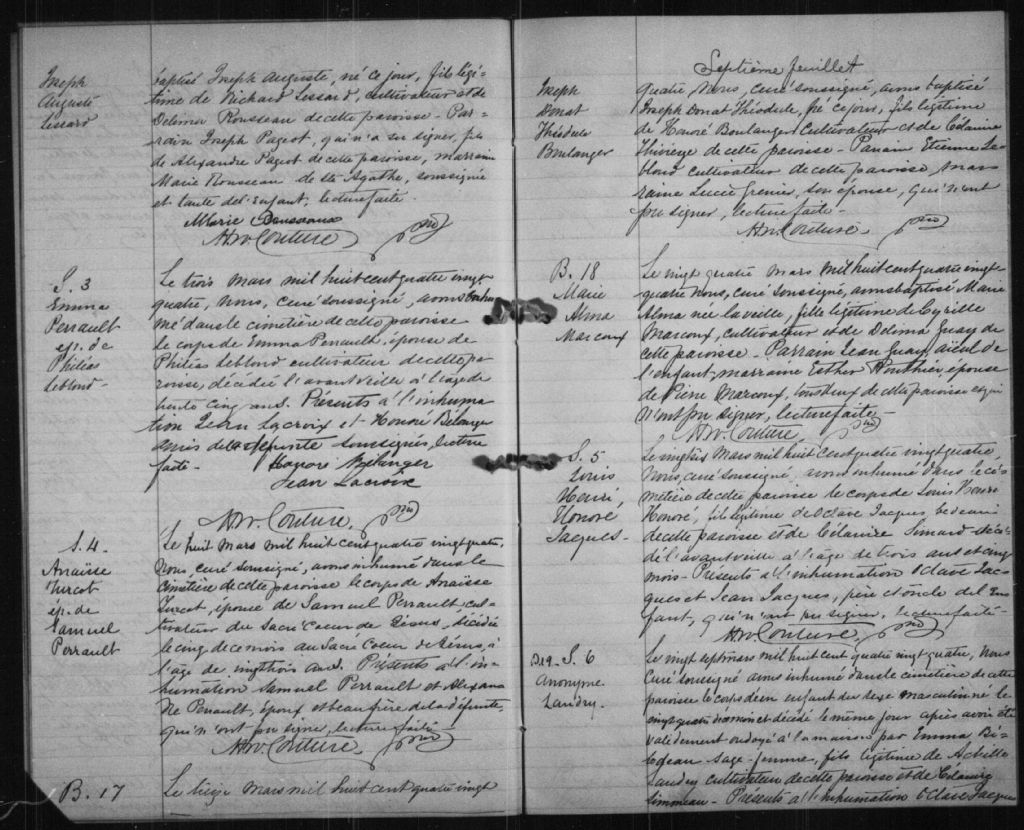 Joseph
Auguste
Lessard
baptisé Joseph Auguste, né ce jour, fils légi-
time de Richard Lessard, cultivateur et de
Delima Rousseau de cette paroisse - Par-
rain Joseph Pageot, qui n'a su signer, fils
de Alexandre Pageot de cette paroisse, marraine
Marie Rousseau de Ste Agathe, soussignée
et tante de l'enfant, lecture faite.
Marie Rousseau
Couture ptre
S. 3
Emma
Perrault
ép. de
Philéas
Leblond -
Le trois mars mil huit cent quatre vingt
quatre, Nous, curé soussigné, avons inhu
mé dans le cimetière de cette paroisse
le corps de Emma Perrault, épouse de
Philéas Leblond cultivateur de cette pa
roisse, décédée l'avant veille à l'âge de
trente cinq ans. Présents à l'inhuma
tion Jean Lacroix et Honoré Bélanger
amis de la défunte soussignés, lecture
faite - Honoré Bélanger
Jean Lacroix
Couture, ptre
S. 4
Anaïse
Turcot
ép. de
Samuel
Perrault
Le huit mars mil huit cent quatre vingt quatre,
Nous, curé soussigné, avons inhumé dans le
cimetière de cette paroisse le corps de Anaïse
Turcot, épouse de Samuel Perrault, cul-
tivateur du Sacré Coeur de Jésus, décédée
le cinq de ce mois au Sacré Coeur de Jésus, à
l'âge de vingt trois ans. Présents à l'in-
humation Samuel Perrault et
Perrault, époux et beau frère de la défunte,
qui n'ont pu signer, lecture faite
Couture, ptre
B. 17
Le treize Mars mil huit cent quatre vingt
Septième feuillet
Joseph
Donat
Théodule
Boulanger
quatre, Nous, curé soussigné, avons baptisé
Joseph Donat Théodule, né ce jour, fils légitime
de Honoré Boulanger Cultivateur et de Célanire
de cette paroisse - Parrain Etienne Le
blond cultivateur de cette paroisse, mar
raine Lucie Grenier, son épouse, qui n'ont
pu signer, lecture faite -
Couture ptre
B. 18
Marie
Alma
Marcoux
Le vingt quatre mars mil huit cent quatre vingt
quatre Nous, curé soussigné, avons baptisé Marie
Alma née la veille, fille légitime de Cyrille
Marcoux, cultivateur et de Delima Guay de
cette paroisse - Parrain Jean Guay, aïeul de
l'enfant, marraine Esther épouse
de Pierre Marcoux, tous deux de cette paroisse et qui
n'ont pu signer, lecture faite -
Couture, ptre
S. 5
Louis
Henri,
Honoré
Jacques -
Le vingt six Mars mil huit cent quatre vingt quatre,
Nous, curé soussigné, avons inhumé dans le ci
metière de cette paroisse le corps de Louis Henri
Honoré, fils légitime de Octave Jacques, bedeau
de cette paroisse et de Célanire Simard décé-
dé l'avant veille à l'âge de trois ans et cinq
mois - Présents à l'inhumation Octave Jac-
ques et Jean Jacques, père et oncle de l'en
fant, qui n'ont pu signer, lecture faite -
Couture, ptre
B. 19 - S. 6
Anonyme
Landry.
Le vingt sept mars mil huit cent quatre vingt quatre, Nous
Curé soussigné avons inhumé dans le cimetière de cette
paroisse le corps d'un enfant du sexe masculin né le
vingt quatre du mois et décédé le même jour après avoir été
validement ondoyé à la maison par Emma Bi-
lodeau sage-femme, fils légitime de Achille
Landry cultivateur de cette paroisse et de Célanire
- Présents à l'inhumation Octave Jacques